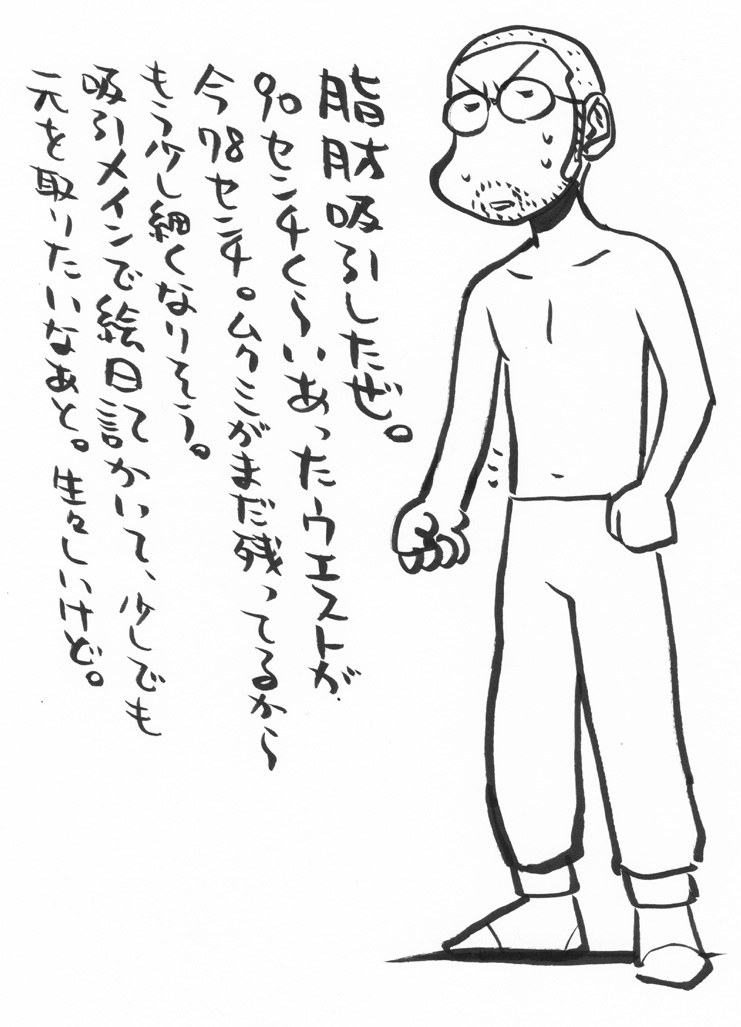 脂肪吸引したぜ。
90センチくらいあったウエストが
今78センチ。ムクミがまだ残ってるから
もう少し細くなりそう。
吸引メインで絵日記かいて、少しでも
元を取りたいなあと。生々しいけど。